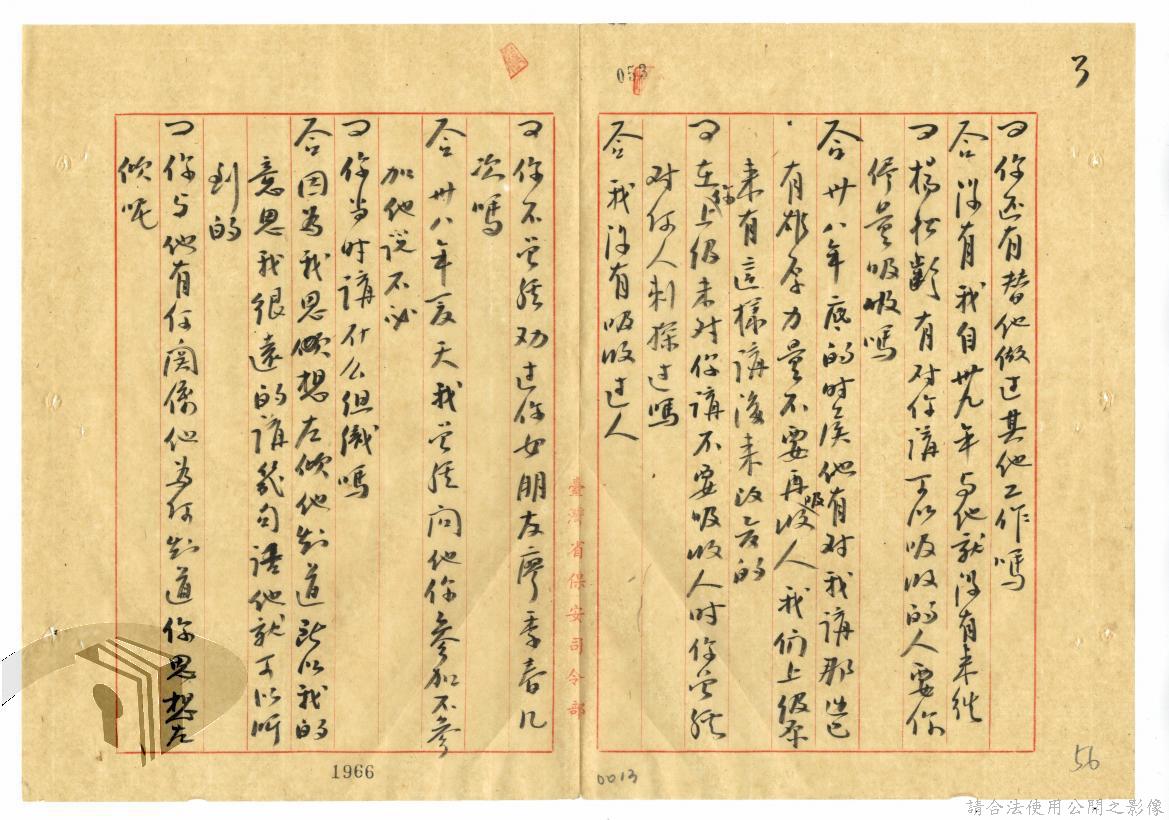 053
3
问你还有替他做过其他工作嗎
答没有我自卅九年与他就没有来往
问楊 齡有对你講可以吸收的人要你
儘量吸收嗎
答卅八年底的时候他有对我講那些已
有雄厚力量不要再吸收人我们上级原
来有這樣講後来改 的
问在你上级未对你講不要吸收人时你曾经
对何人刺探过嗎
答我没有吸收过人
臺灣省保安司令部
问你不曾经劝过你女朋友廖季春几
次嗎
答卅八年夏天我曾经问他你參加不參
加他说不必
问你当时講什么组织嗎
答因為我思想左倾他知道所以我的
意思我很遠的講幾句話他就可以听
到的
问你与他有何関係他為何知道你思想左
倾呢
1966
0013
56
請合法使用公開之影像